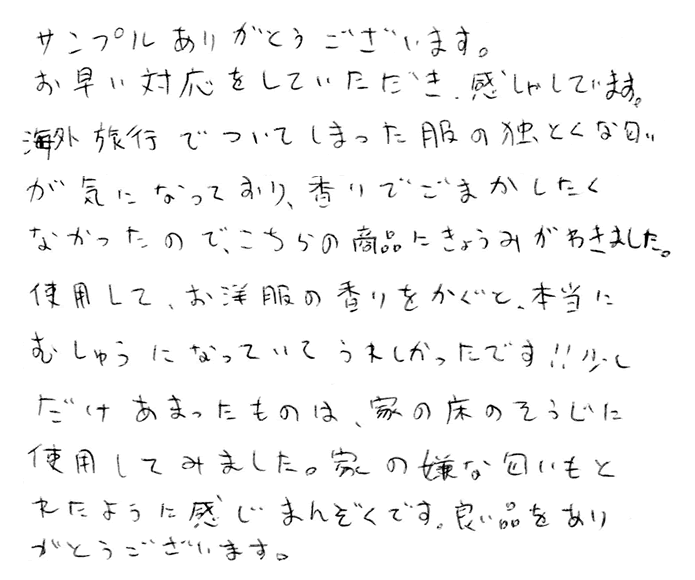 サンプルありがとうございます。
お早い対応をしていただき、感しゃしています。
海外旅行でついてしまった服の独とくな匂い
が気になっており、香りでごまかしたく
なかったので、こちらの商品にきょうみがわきました。
使用して、お洋服の香りをかぐと、本当に
むしゅうになっていてうれしかったです!!少し
だけあまったものは、家の床のそうじに
使用してみました。家の嫌な匂いもと
れたように感じまんぞくです。良い品をあり
がとうございます。